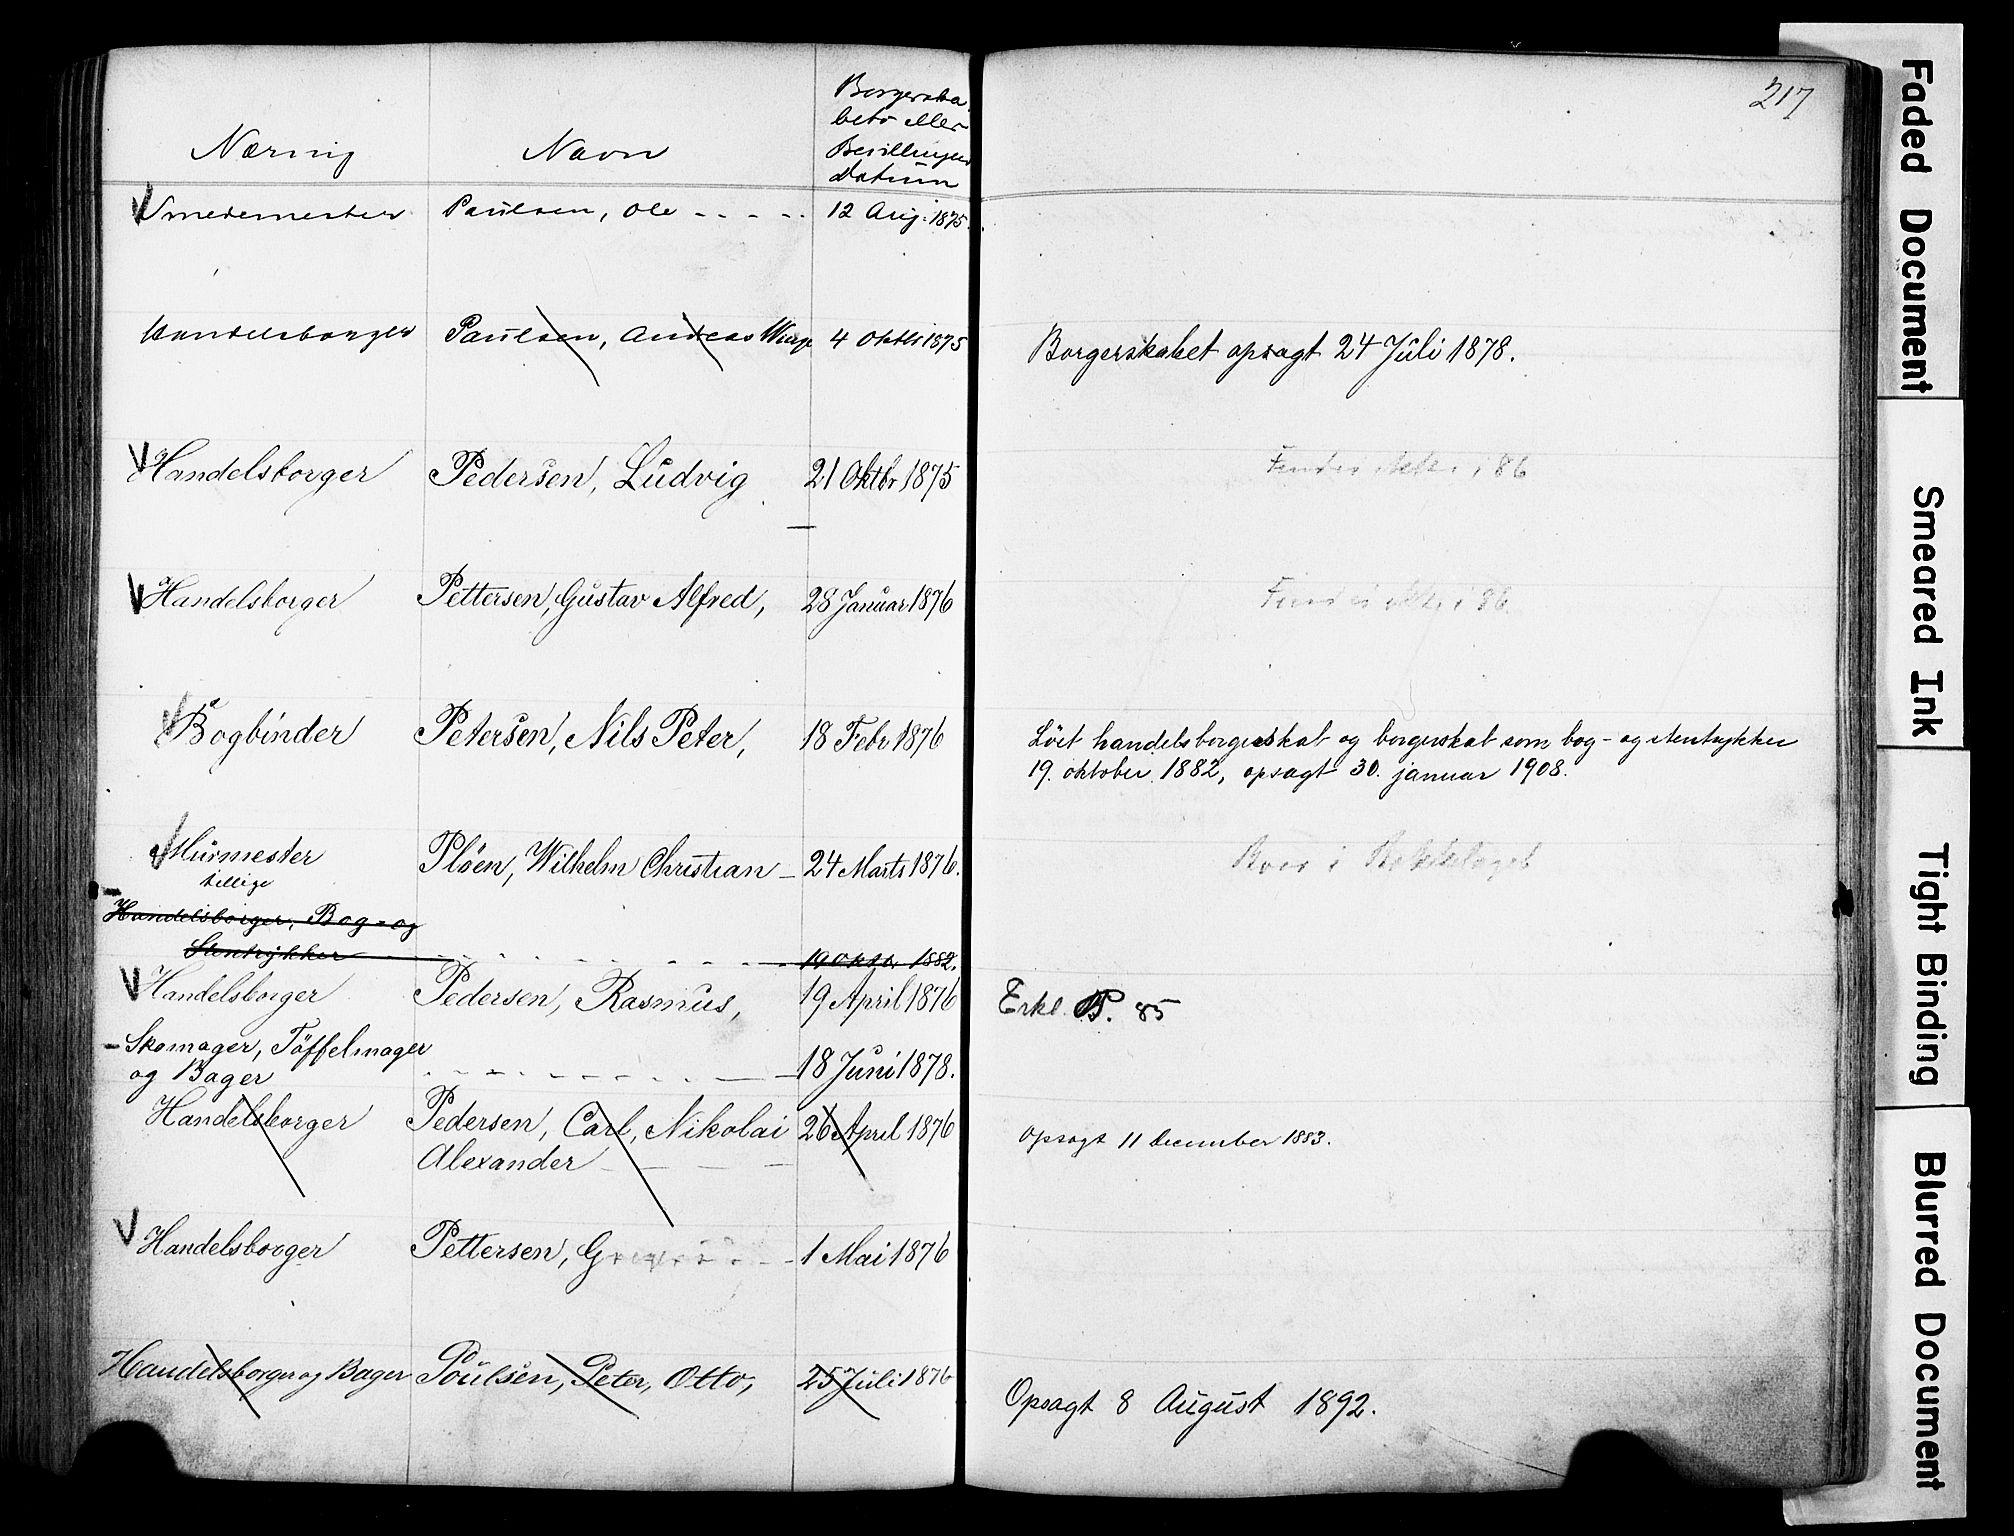 217
Næring Navn Borgerska
bets eller
Bevillingens
Datum
Smedemester Paulsen, Ole - - - - 12 Aug. 1875.
Handelsborger Paulsen, Andreas Wiese 4 Oktbr 1875 Borgerskabet opsagt 24 Juli 1878.
Handelsborger Pedersen, Ludvig 21 Oktbr 1875 i 86
Handelsborger Pettersen, Gustav Alfred, 28 Januar 1876 i 86
Bogbinder Petersen, Nils Peter, 18 Febr 1876 Löst handelsborgerskab og borgerskab som bog- og stentrykker
19. oktober 1882, opsagt 30. januar 1908.
Murmester Plöen, Wilhelm Christian - 24 Marts 1876.
tillige
Handelsborger, Bog- og
Stentrykker - - - - - - 19 Oktbr 1882.
Handelsborger Pedersen, Rasmus, 19 April 1876 Erkl. P. 85
- Skomager, Töffelmager
og Bager - - - - - - 18 Juni 1878.
Handelsborger Pedersen, Carl, Nikolai 26 April 1876 Opsagt 11 december 1883.
Alexander - - -
Handelsborger Pettersen, G - - 1 Mai 1876
Handelsborger og Bager Poulsen, Peter, Otto, 25 Juli 1876 Opsagt 8 August 1892.
Faded Document
Smeared Ink
Tight Binding
Blurred Document